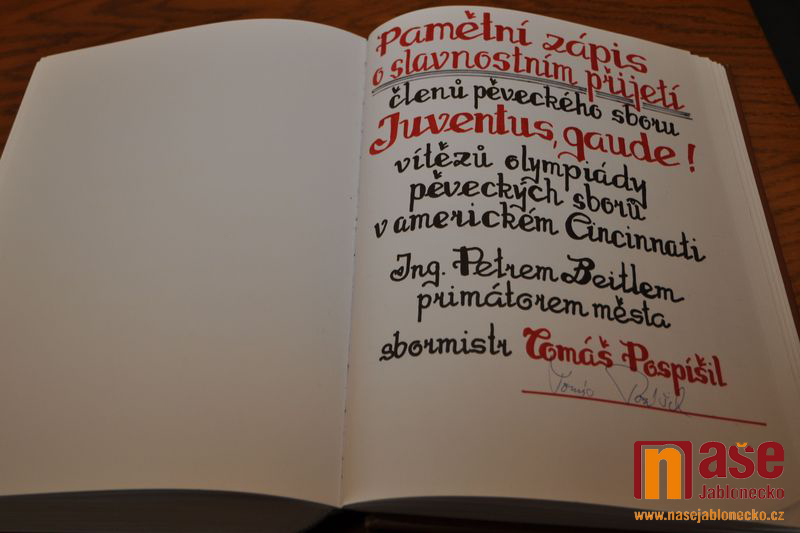 Pamětní zápis
o slavnostním přijetí
členů pěveckého sboru
Juventus, gaude!
vítězů olympiády
pěveckých sborů
v americkém Cincinnati
Ing. Petrem Beitlem
primátorem města
sbormistr Tomáš Pospíšil
Tomáš
n naše
Jablonecko
www.nasejablonecko.cz